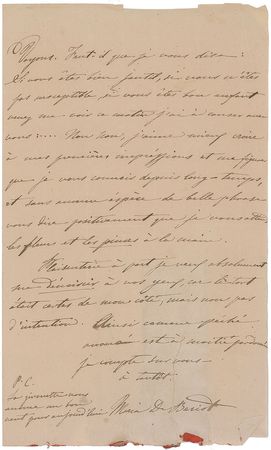 Voyons. Faut-il que je vous dise:
Si vous êtes bien gentil, si vous n'êtes
pas susceptible, si vous êtes bon enfant
venez me voir ce matin j'ai à causer avec
vous :.... Non non, j'aime mieux croire
à mes premières impressions et me figurer
que je vous connais depuis longtemps,
et sans aucune espèce de belle phrase
vous dire positivement que je vous attends
les fleurs et les pinces à la main.
Plaisanterie à part je veux absolument
me à vos yeux, car le tort
était certes de mon côté, mais non pas
d'intention. Ainsi comme péché
avoué est à moitié pardonné
je compte sur vous.
à tantôt.
P.S.
nous
un bon
pour aujourd'hui
Maria De Beriot